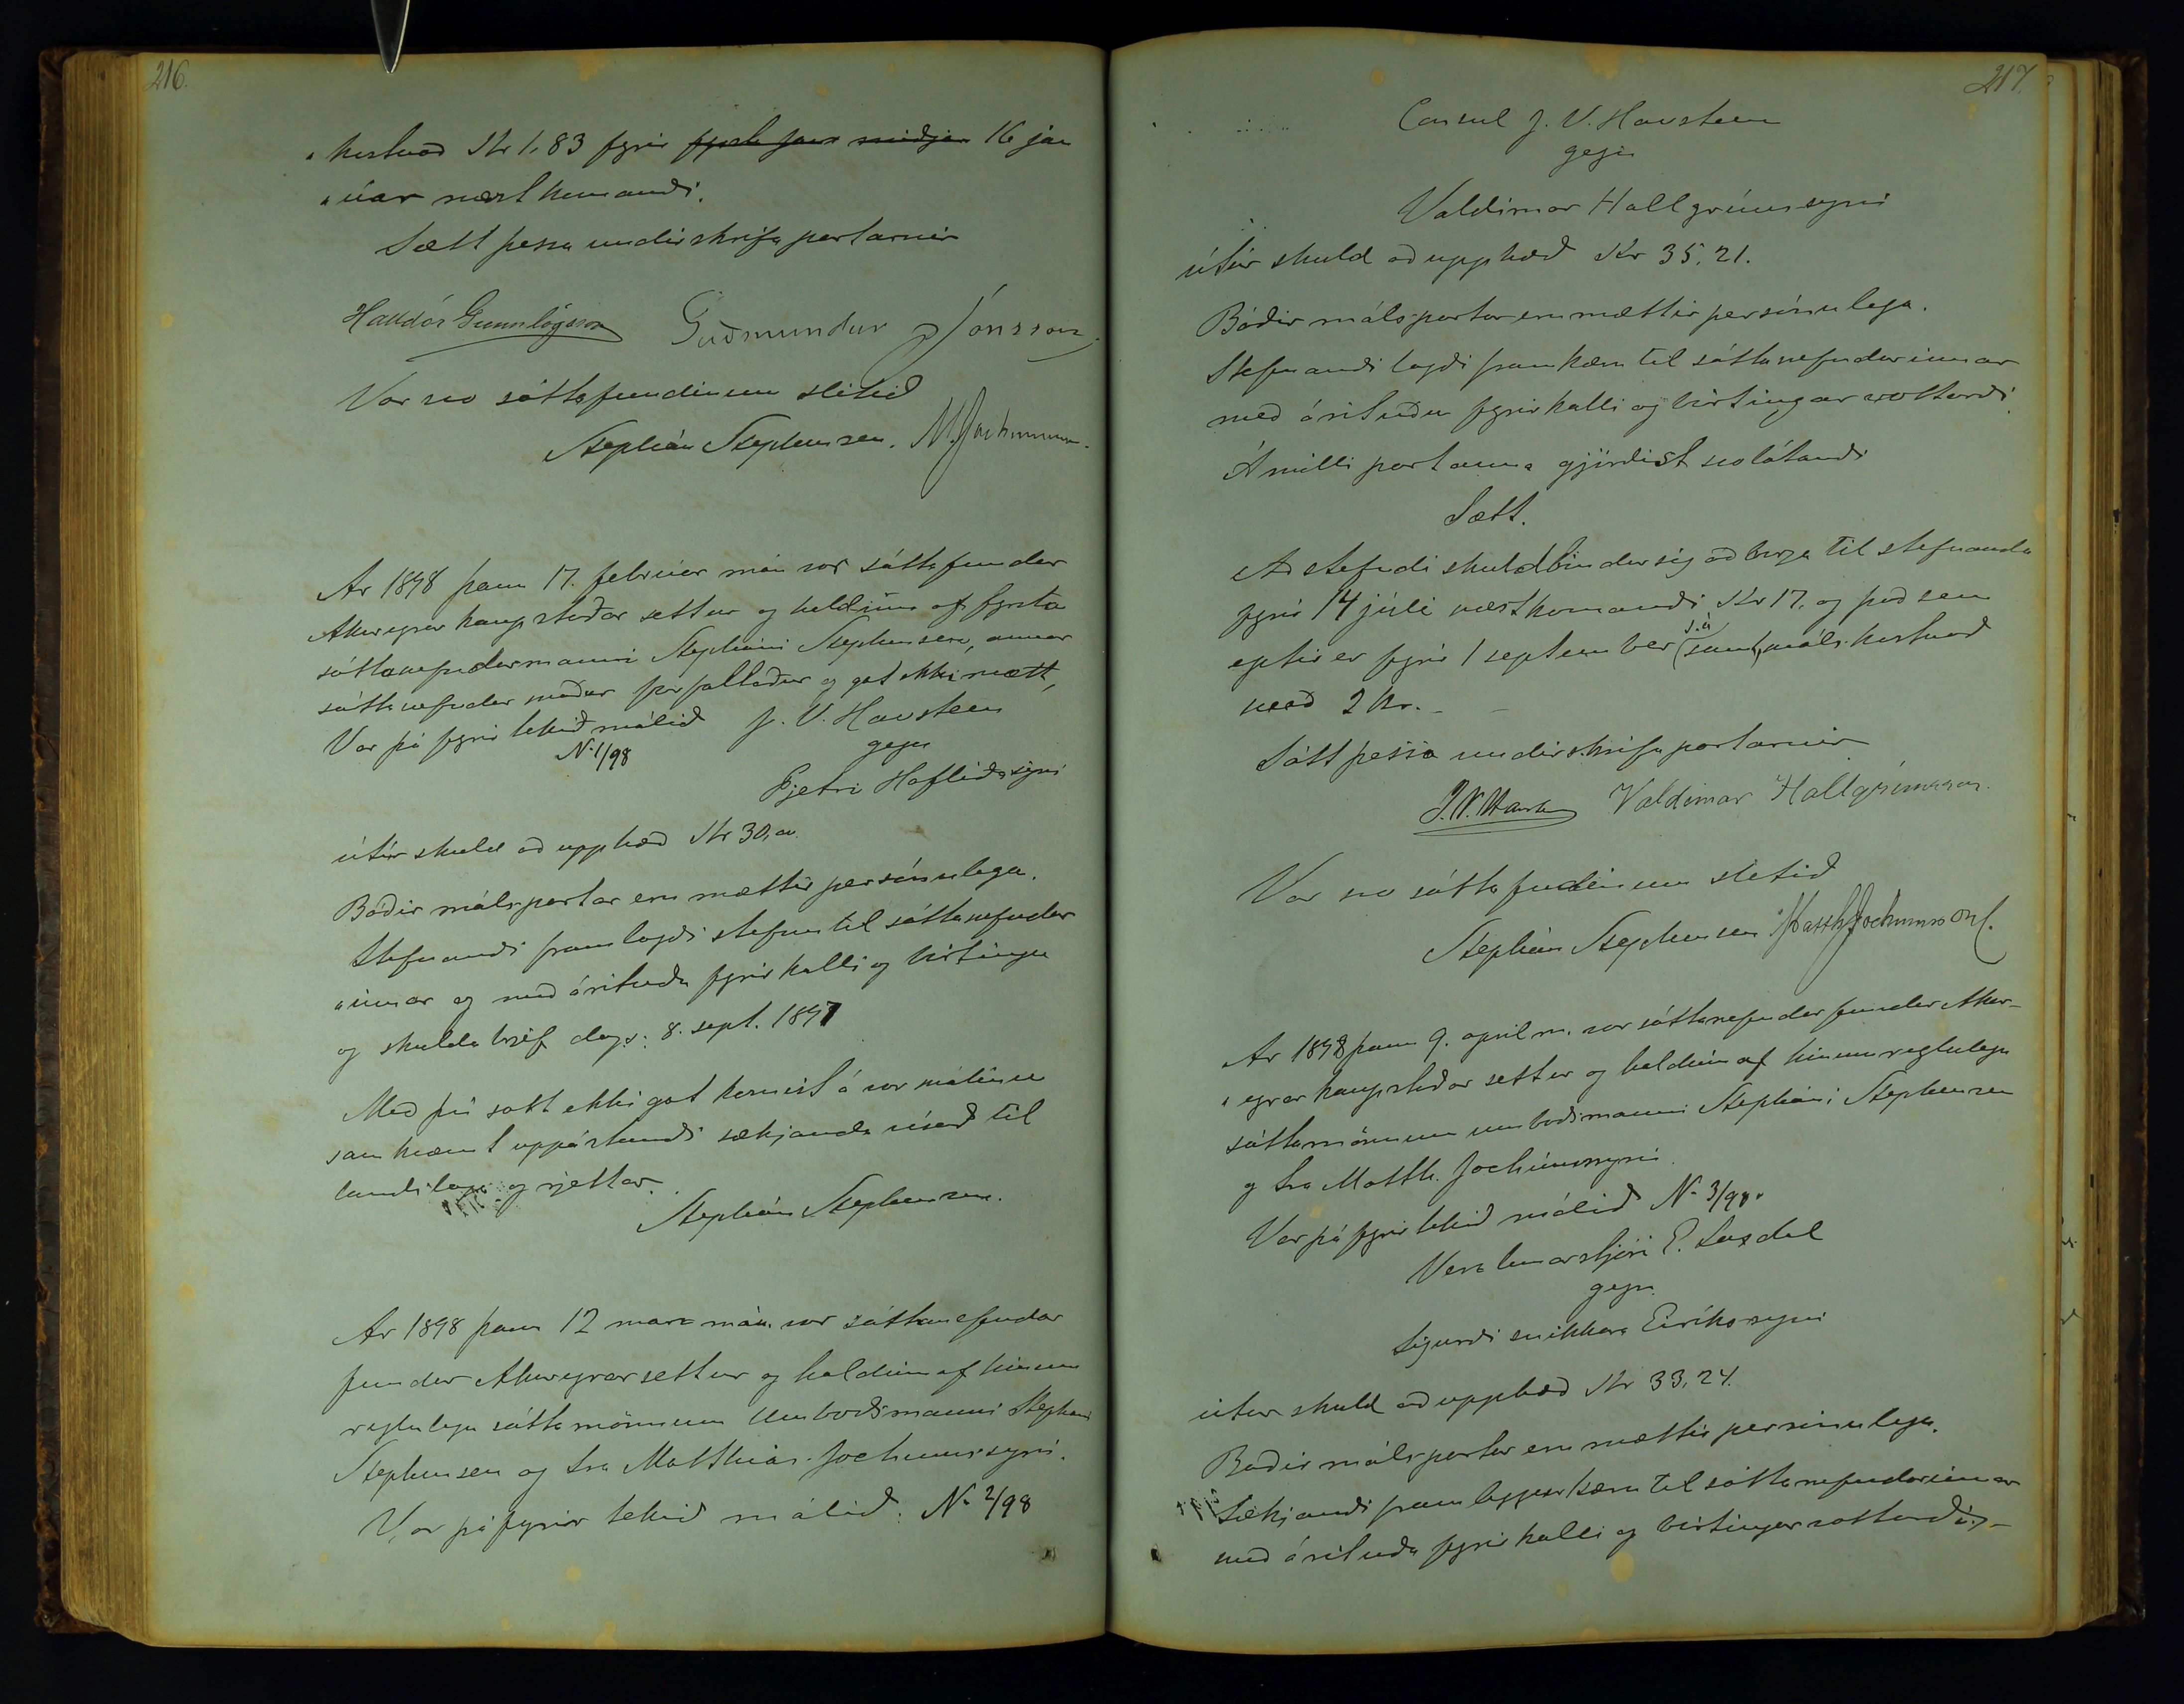 216.
"kostnað Kr 1,83 fyrir fyrsta janr miðjan 16 jan
"úar næstkomandi.
Sætt þessa undirskrifa partarnir
Halldór Gunnlögsson Guðmundur Jónsson
Var svo sáttafundinum slitið
Stephán Stephensen. M. Jochumsson.
Ár 1898 þann 17. febrúar mán var sáttafundur
Akureyrar kaupstaðar settur og haldinn af fyrsta
sáttanefndarmanni Stepháni Stephensen, annar
sáttanefndar maður forfallaður og gat ekki mætt,
Var þá fyrir tekið málið J. V. Havsteen
N. 1/98 gegn
Pjetri Hafliðasyni
útúr skuld að upphæð Kr 30,00.
Báðir málspartar eru mættir persónulega.
Stefnandi framlagði stefnu til sáttanefndar
"innar og með árituðu fyrirkalli og birtingu
og skuldabrjef dags: 8. sept. 1897
Með því sætt ekki gat komist á var málinu
samkvæmt uppástandi sækjanda vísað til
landslaga og rjettar.
Stephán Stephensen.
Ár 1898 þann 12 marz mán. var sáttanefndar
fundur Akureyrar settur og haldinn af hinum
reglulegu sáttamönnum Umboðsmanni Stepháni
Stephensen og Sra Matthias Jochumssyni.
Var þá fyrir tekið málið: N. 2/98
217.
Consul J. V. Havsteen
gegn
Valdimar Hallgrímssyni
útúr skuld að upphæð Kr 35,21.
Báðir málspartar eru mættir persónulega.
Stefnandi lagði fram kæru til sáttanefndarinnar
með árituðu fyrirkalli og birtingarvottorði.
Á milli partanna gjörðist svolátandi
Sætt.
Að stefndi skuldbindur sig að borga til stefnanda
fyrir 14 júlí næstkomandi Kr 17, og það sem
eptir er fyrir 1 september (s.á samt málskostnað
með 2 Kr. -
Sátt þessa undirskrifa partarnir
J. V. Havsteen Valdimar Hallgrímsson.
Var svo sáttafundinum slitið
Stephán Stephensen Matth Jochumsson.
Ár 1898 þann 9. apríl m. var sáttanefndar fundur Akur-
"eyrar kaupstaðar settur og haldinn af hinum reglulegu
sáttamönnum umboðsmanni Stepháni Stephensen
og Sra Matth. Jochumssyni.
Var þá fyrir tekið málið N. 3/98.
Verzlunarstjóri E. Laxdal
gegn
Sigurði snikkara Eiríkssyni
útúr skuld að upphæð Kr 33,24.
Báðir málspartar eru mættir persónulega.
Sækjandi framleggur kæru til sáttanefndarinnar
með árituðu fyrirkalli og birtingarvottorði, -